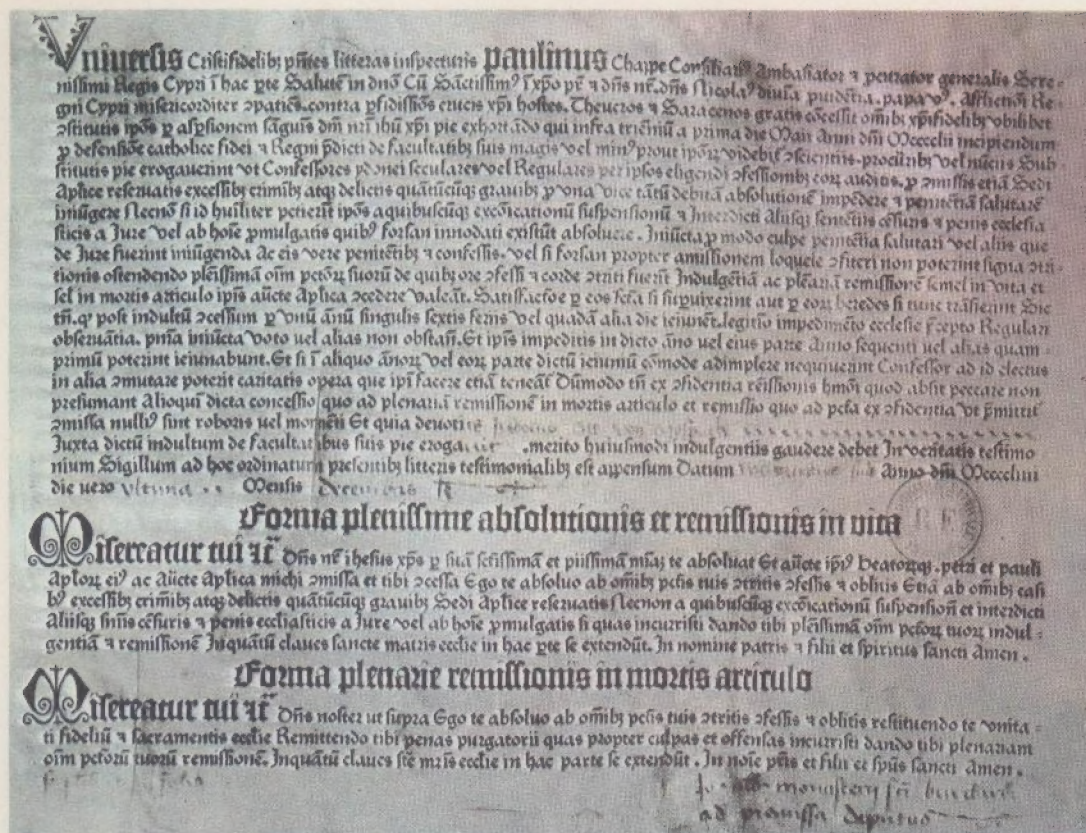 Vniuersis Cristifidelibꝫ pñtes litteras inspecturis paulinus Chappe Consiliariꝰ Ambasiator ⁊ pcurator generalis Sere-
nissimi Regis Cypri ĩ hac ꝑte Salutẽ in dnõ Cũ Sãctissimꝰ ĩ xp̃o pr̃ ⁊ dñs nr̃. dñs Nicolaꝰ diuĩa ꝓuidẽtia. papa vꝰ. Afflictiõi Re-
gni Cypri misericorditer ↄpatiẽs. contra ꝑfidissiõs crucis xp̃i hostes. Theucros ⁊ Saracenos gratis ↄcessit omĩbꝫ xp̃ifidelibꝫ vbilibet
ↄstitutis ip̃os ꝑ asꝑsionem sãguĩs dñi nr̃i ihũ xp̃i pie exhortãdo qui infra triẽniũ a prima die Maii Anni dñi Mcccclii incipiendum
ꝓ defensiõe catholice fidei ⁊ Regni p̃dicti de facultatibꝫ suis magis vel minꝰ prout ip̃oꝝ videbit̃ ↄscientiis. ꝓcũribꝫ vel nũciis Sub
stitutis pie erogauerint vt Confessores ydonei seculares vel Regulares per ip̃sos eligendi ↄfessionibꝫ eoꝝ auditis. ꝓ ↄmissis etiã Sedi
Aplice reseruatis excessibꝫ crimĩbꝫ atqꝫ delictis quãtũcũqꝫ grauibꝫ ꝓ vna vice tãtũ debitã absolutionẽ impẽdere ⁊ penitẽtiã salutarẽ
iniũgere Necnõ si id huĩliter petierĩt ip̃os a quibuscũqꝫ excõicationũ suspensionũ ⁊ Interdicti Aliisqꝫ sentẽtiis cẽsuris ⁊ penis ecclesia
sticis a Jure vel ab hoĩe ꝓmulgatis quibꝫ forsan innodati existũt absoluere. Iniũcta ꝓ modo culpe penitẽtia salutari vel aliis que
de Jure fuerint iniũgenda Ac eis vere penitẽtibꝫ ⁊ confessis. vel si forsan propter amissionem loquele ↄfiteri non poterint signa ↄtri-
tionis ostendendo plẽissimã oĩm pctõꝝ suoꝝ de quibꝫ ore ↄfessi ⁊ corde ↄtriti fuerĩt Indulgẽtiã ac plẽariã remissionẽ semel in vita et
sel in mortis articulo ip̃is aũcte Aplica ↄcedere valeãt. Satisfactõe ꝑ eos fcã si suꝑuixerint aut ꝑ eoꝝ heredes si tunc trãsierint Sic
tñ. qꝰ post indultũ ↄcessum ꝑ vnũ ãnũ singulis sextis feriis vel quadã alia die ieiunẽt. legitĩo impedimẽto ecclesie p̃cepto Regulari
obseruãtia. pñia iniũcta voto uel alias non obstañ. Et ip̃is impeditis in dicto ãno uel eius parte Anno sequenti uel alias quam-
primũ poterint ieiunabunt. Et si ĩ aliquo ãnoꝝ vel eoꝝ parte dictũ ieiuniũ cõmode adimplere nequiuerint Confessor ad id electus
in alia ↄmutare poterit caritatis opera que ip̃i facere etiã teneãt̃ Dũmodo tñ ex ↄfidentia rẽissionis hmõi quod absit peccare non
presumant Alioqui dicta concessio quo ad plenariã remissionẽ in mortis articulo et remissio quo ad pctã ex ↄfidentia vt p̃mittit̃
ↄmissa nulliꝰ sint roboris uel momẽti Et quia deuoti
Juxta dictũ indultum de facultatibus suis pie eroga .merito huiusmodi indulgentiis gaudere debet In veritatis testimo
nium Sigillum ad hoc ordinatum presentibꝫ litteris testimonialibꝫ est appensum Datum Anno dñi Mccccliiii
die uero vltima Mensis Decembris
Forma plenissime absolutionis et remissionis in vita
Misereatur tui ⁊c̃ Dñs nr̃ ihesus xp̃s ꝑ suã sctissimã et piissimã mĩaꝫ te absoluat Et aũcte ip̃iꝰ beatoꝝqꝫ. petri et pauli
Apl̃oꝝ eiꝰ ac Aũcte Aplica michi ↄmissa et tibi ↄcessa Ego te absoluo ab oĩmibꝫ pctis tuis ↄtritis ↄfessis ⁊ oblitis Etiã ab omĩbꝫ casi
bꝰ excessibꝫ crimĩbꝫ atqꝫ delictis quãtũcũqꝫ grauibꝫ Sedi Aplice reseruatis Necnon a quibuscũqꝫ excõicationũ suspensioñ et interdicti
Aliisqꝫ sñiis cẽsuris ⁊ penis eccliasticis a Jure vel ab hoĩe ꝓmulgatis si quas incurristi dando tibi plẽissimã oĩm pctõꝝ tuoꝝ indul-
gentiã ⁊ remissionẽ Inquãtũ claues sancte matris ecclie in hac ꝑte se extendũt. In nomine patris ⁊ filii et spiritus sancti Amen.
Forma plenarie remissionis in mortis articulo
Misereatur tui ⁊c̃ Dñs noster ut supra Ego te absoluo ab omĩbꝫ pctis tuis ↄtritis ↄfessis ⁊ oblitis restituendo te vnita-
ti fideliũ ⁊ sacramentis ecclie Remittendo tibi penas purgatorii quas propter culpas et offensas incurristi dando tibi plenariam
oĩm pctõꝝ tuoꝝ remissionẽ. Inquãtũ claues sctẽ mr̃is ecclie in hac parte se extendũt. In noĩe pr̃is et filii et sp̃us sancti Amen.
monasterii
ad premissa deputatus